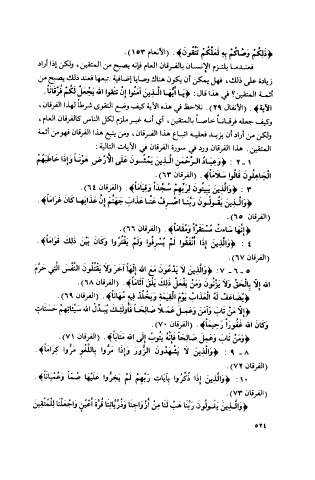 ﴿ذَلِكُمْ وَصَّاكُمْ بِهِ لَعَلَّكُمْ تَتَّقُونَ﴾. (الأنعام ١٥٣).
فعندما يلتزم الإنسان بالفرقان العام فإنه يصبح من المتقين، ولكن إذا أراد
زيادة على ذلك، فهل يمكن أن يكون هناك وصايا إضافية تبعها فعند ذلك يصبح من
أئمة المتقين؟ في هذا قال: ﴿يَا أَيُّهَا الَّذِينَ آمَنُوا إِنْ تَتَّقُوا اللَّهَ يَجْعَلْ لَكُمْ فُرْقَانًا.
الآية﴾. (الأنفال ٢٩). نلاحظ في هذه الآية كيف وضع التقوى شرطاً لهذا الفرقان،
وكيف جعله فرقاناً خاصاً بالمتقين، أي أنه غير ملزم لكل الناس كالفرقان العام،
ولكن من أراد أن يزيد فعليه اتباع هذا الفرقان، ومن يتبع هذا الفرقان فهو من أئمة
المتقين. هذا الفرقان ورد في سورة الفرقان في الآيات التالية:
١ - ٢ : ﴿وَعِبَادُ الرَّحْمَنِ الَّذِينَ يَمْشُونَ عَلَى الْأَرْضِ هَوْنًا وَإِذَا خَاطَبَهُمُ
الْجَاهِلُونَ قَالُوا سَلَامًا﴾. (الفرقان ٦٣).
٣ : ﴿وَالَّذِينَ يَبِيتُونَ لِرَبِّهِمْ سُجَّدًا وَقِيَامًا﴾. (الفرقان ٦٤).
﴿وَالَّذِينَ يَقُولُونَ رَبَّنَا اصْرِفْ عَنَّا عَذَابَ جَهَنَّمَ إِنَّ عَذَابَهَا كَانَ غَرَامًا﴾.
(الفرقان ٦٥).
﴿إِنَّهَا سَاءَتْ مُسْتَقَرًّا وَمُقَامًا﴾. (الفرقان ٦٦).
٤ : ﴿وَالَّذِينَ إِذَا أَنْفَقُوا لَمْ يُسْرِفُوا وَلَمْ يَقْتُرُوا وَكَانَ بَيْنَ ذَلِكَ قَوَامًا﴾.
(الفرقان ٦٧).
٥ - ٦ - ٧ : ﴿وَالَّذِينَ لَا يَدْعُونَ مَعَ اللَّهِ إِلَهًا آخَرَ وَلَا يَقْتُلُونَ النَّفْسَ الَّتِي حَرَّمَ
اللَّهُ إِلَّا بِالْحَقِّ وَلَا يَزْنُونَ وَمَنْ يَفْعَلْ ذَلِكَ يَلْقَ أَثَامًا﴾. (الفرقان ٦٨).
﴿يُضَاعَفْ لَهُ الْعَذَابُ يَوْمَ الْقِيَمَةِ وَيَخْلُدْ فِيهِ مُهَانًا﴾. (الفرقان ٦٩).
﴿إِلَّا مَنْ تَابَ وَآمَنَ وَعَمِلَ عَمَلًا صَالِحًا فَأُولَئِكَ يُبَدِّلُ اللَّهُ سَيِّئَاتِهِمْ حَسَنَاتٍ
وَكَانَ اللَّهُ غَفُورًا رَحِيمًا﴾. (الفرقان ٧٠).
﴿وَمَنْ تَابَ وَعَمِلَ صَالِحًا فَإِنَّهُ يَتُوبُ إِلَى اللَّهِ مَتَابًا﴾. (الفرقان ٧١).
٨ - ٩ : ﴿وَالَّذِينَ لَا يَشْهَدُونَ الزُّورَ وَإِذَا مَرُّوا بِاللَّغْوِ مَرُّوا كِرَامًا﴾.
(الفرقان ٧٢).
١٠ : ﴿وَالَّذِينَ إِذَا ذُكِّرُوا بِآيَاتِ رَبِّهِمْ لَمْ يَخِرُّوا عَلَيْهَا صُمًّا وَعُمْيَانًا﴾.
(الفرقان ٧٣).
﴿وَالَّذِينَ يَقُولُونَ رَبَّنَا هَبْ لَنَا مِنْ أَزْوَاجِنَا وَذُرِّيَّاتِنَا قُرَّةَ أَعْيُنٍ وَاجْعَلْنَا لِلْمُتَّقِينَ
٥٢٤